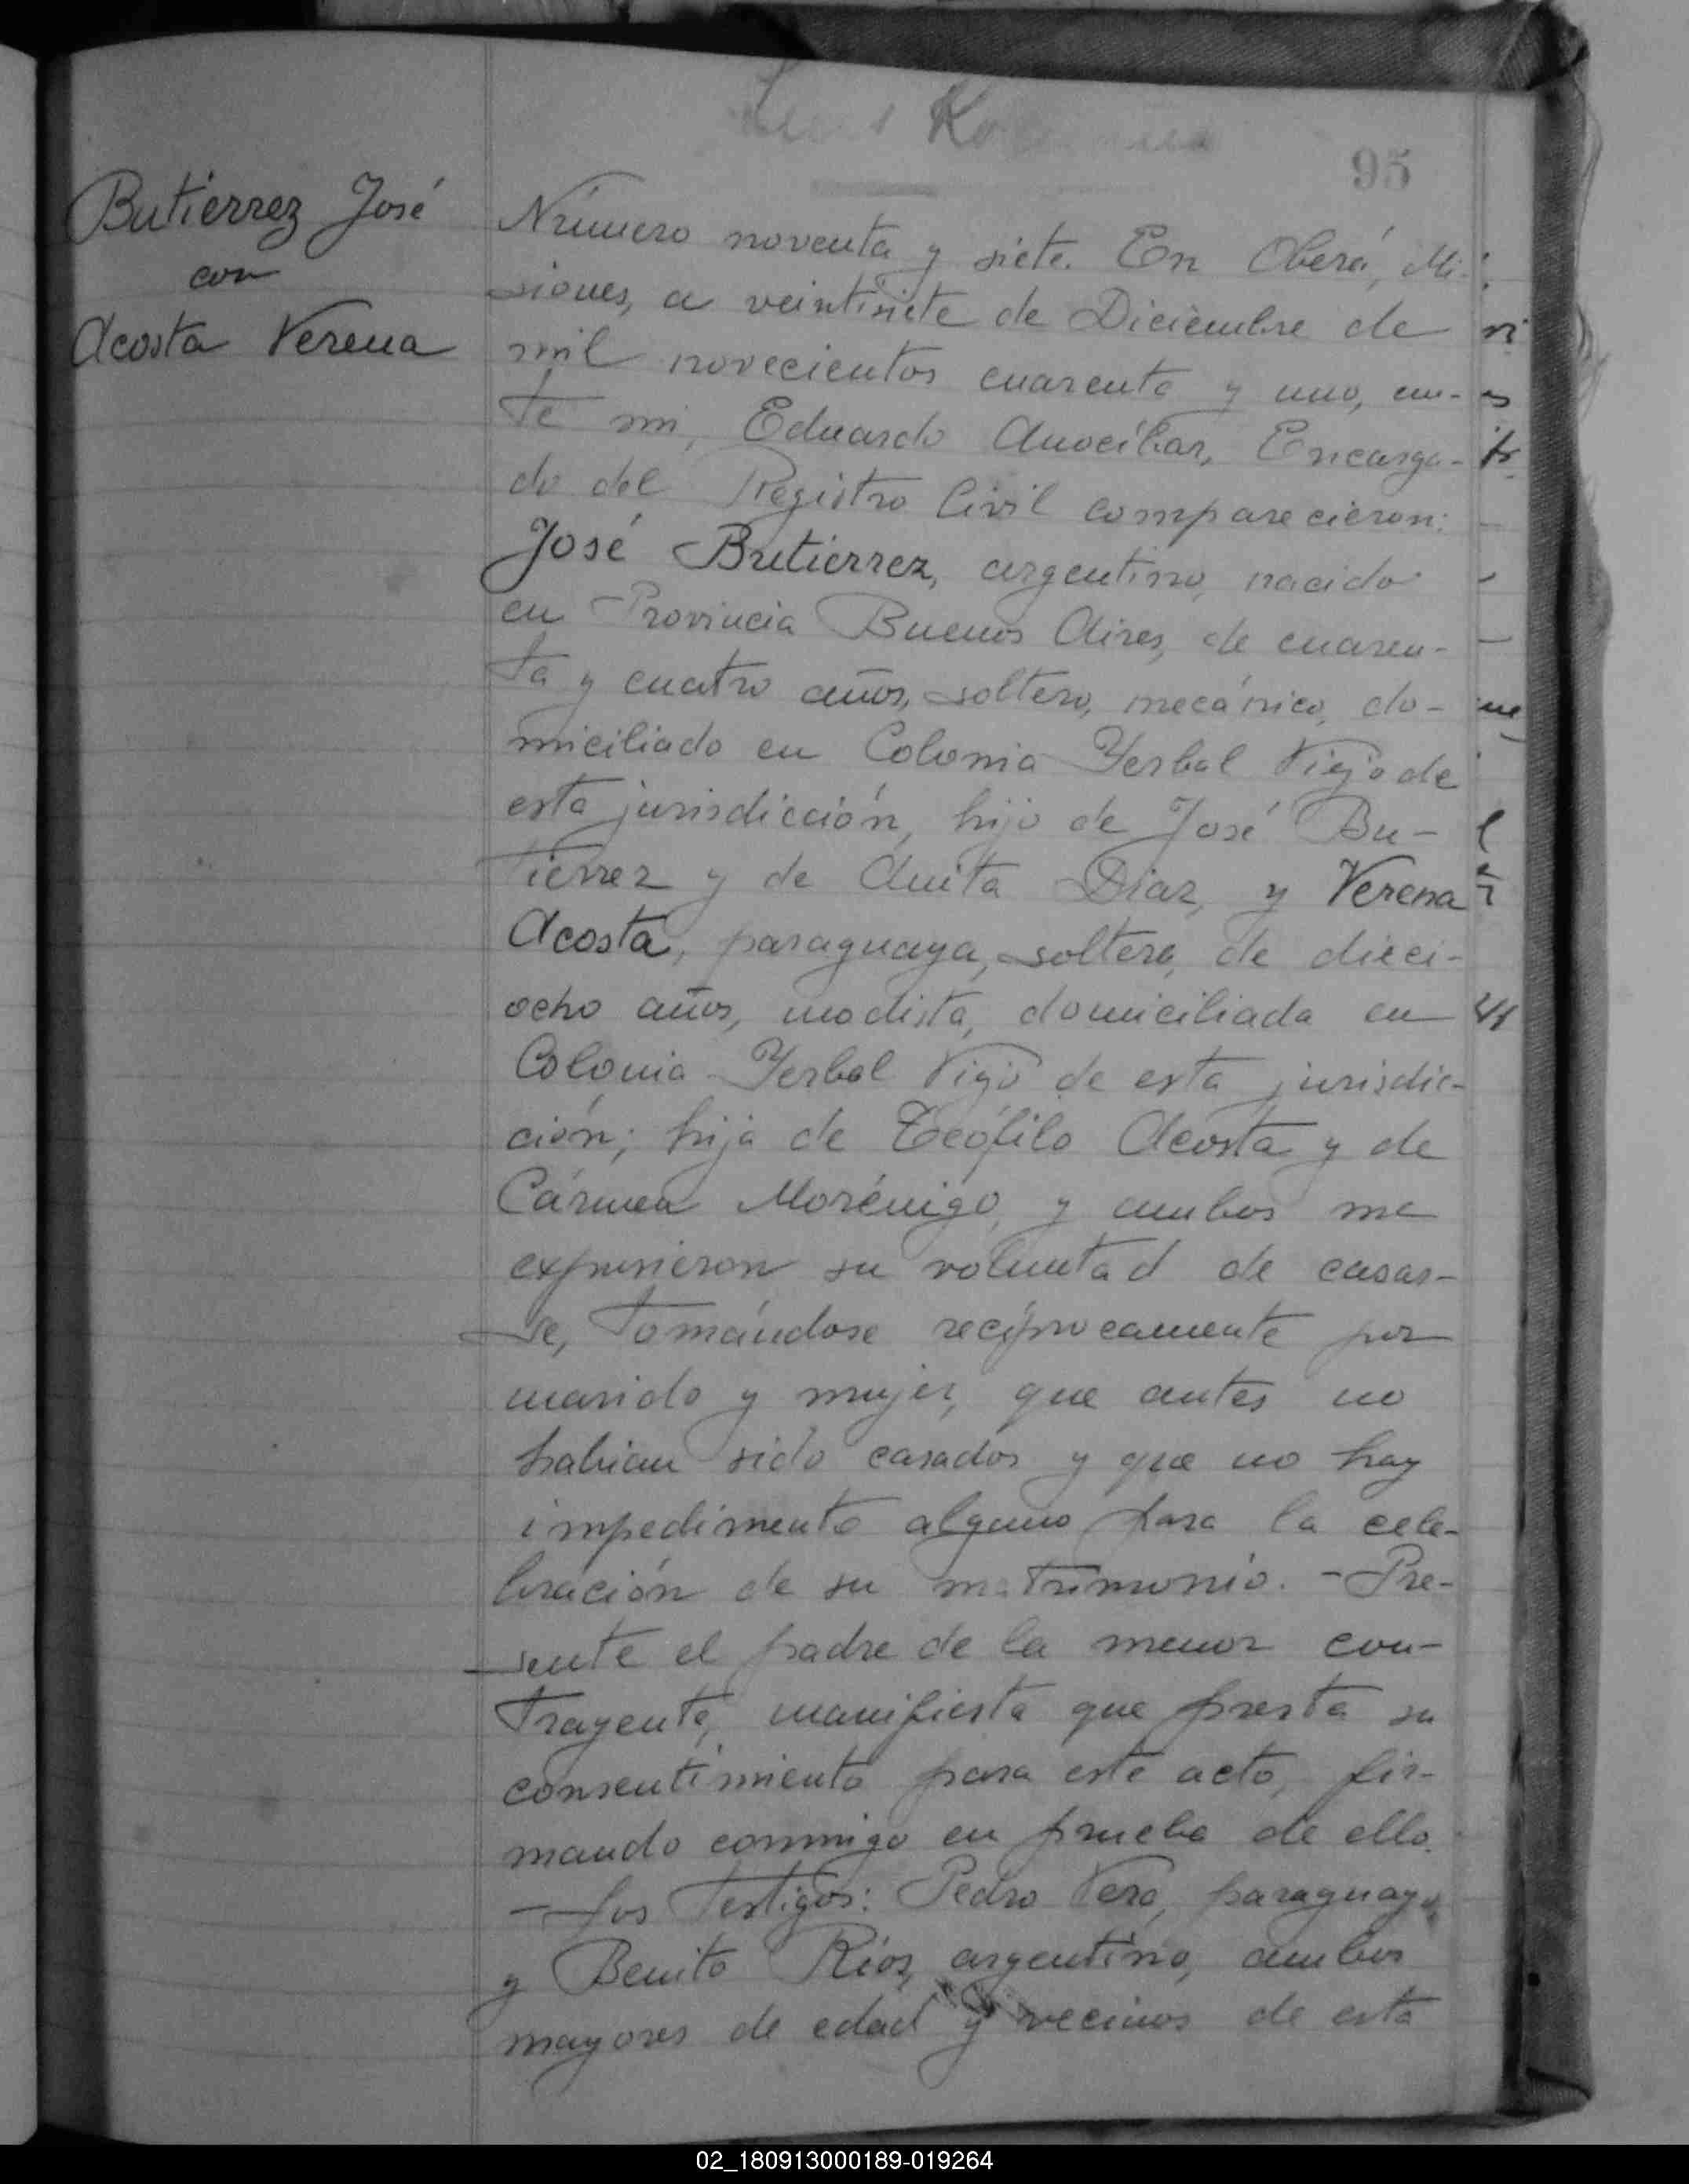 95
Butierrez José
con
Acosta Verena
Número noventa y siete. En Oberá, Mi-
siones, a veintisiete de Diciembre de
mil novecientos cuarenta y uno, an-
te mi, Eduardo Anocíbar, Encarga-
do del Registro Civil comparecieron:
José Butierrez, argentino, nacido
en Provincia Buenos Aires, de cuaren-
ta y cuatro años, soltero, mecánico, do-
miciliado en Colonia Yerbal Viejo de
esta jurisdicción, hijo de José Bu-
tierrez y de Anita Diaz, y Verena
Acosta, paraguaya, soltera, de dieci-
ocho años, modista, domiciliada en
Colonia Yerbal Viejo de esta jurisdic-
ción; hija de Teófilo Acosta y de
Cármen Morénigo, y ambos me
expusieron su voluntad de casar-
se, tomándose recíprocamente por
marido y mujer, que antes no
habian sido casados y que no hay
impedimento alguno para la cele-
bración de su matrimonio. - Pre-
sente el padre de la menor con-
trayente, manifiesta que presta su
consentimiento para este acto, fir-
mando conmigo en prueba de ello.
- Los testigos: Pedro Vera, paraguayo,
y Benito Ríos, argentino, ambos
mayores de edad y vecinos de esta
02_180913000189-019264